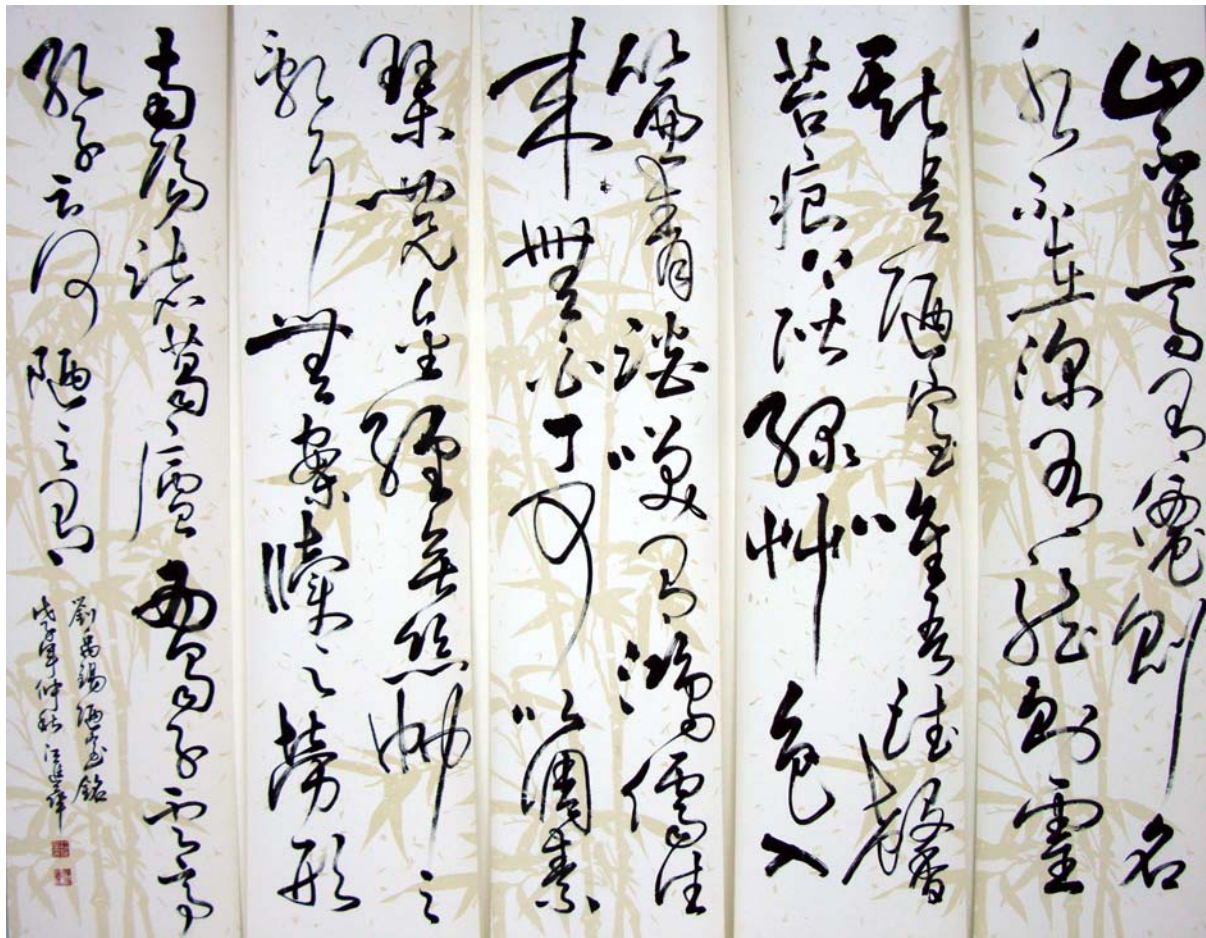 山不在高有僊則名
水不在深有龍則靈
斯是陋室唯吾德馨
苔痕上階綠艸色入
簾青談笑有鴻儒往
來無白丁可以調素
琴閱金經無絲竹之
亂耳無案牘之勞形
南陽諸葛廬西蜀子雲亭
孔子云何陋之有
劉禹錫陋室銘
戊子年仲秋江進